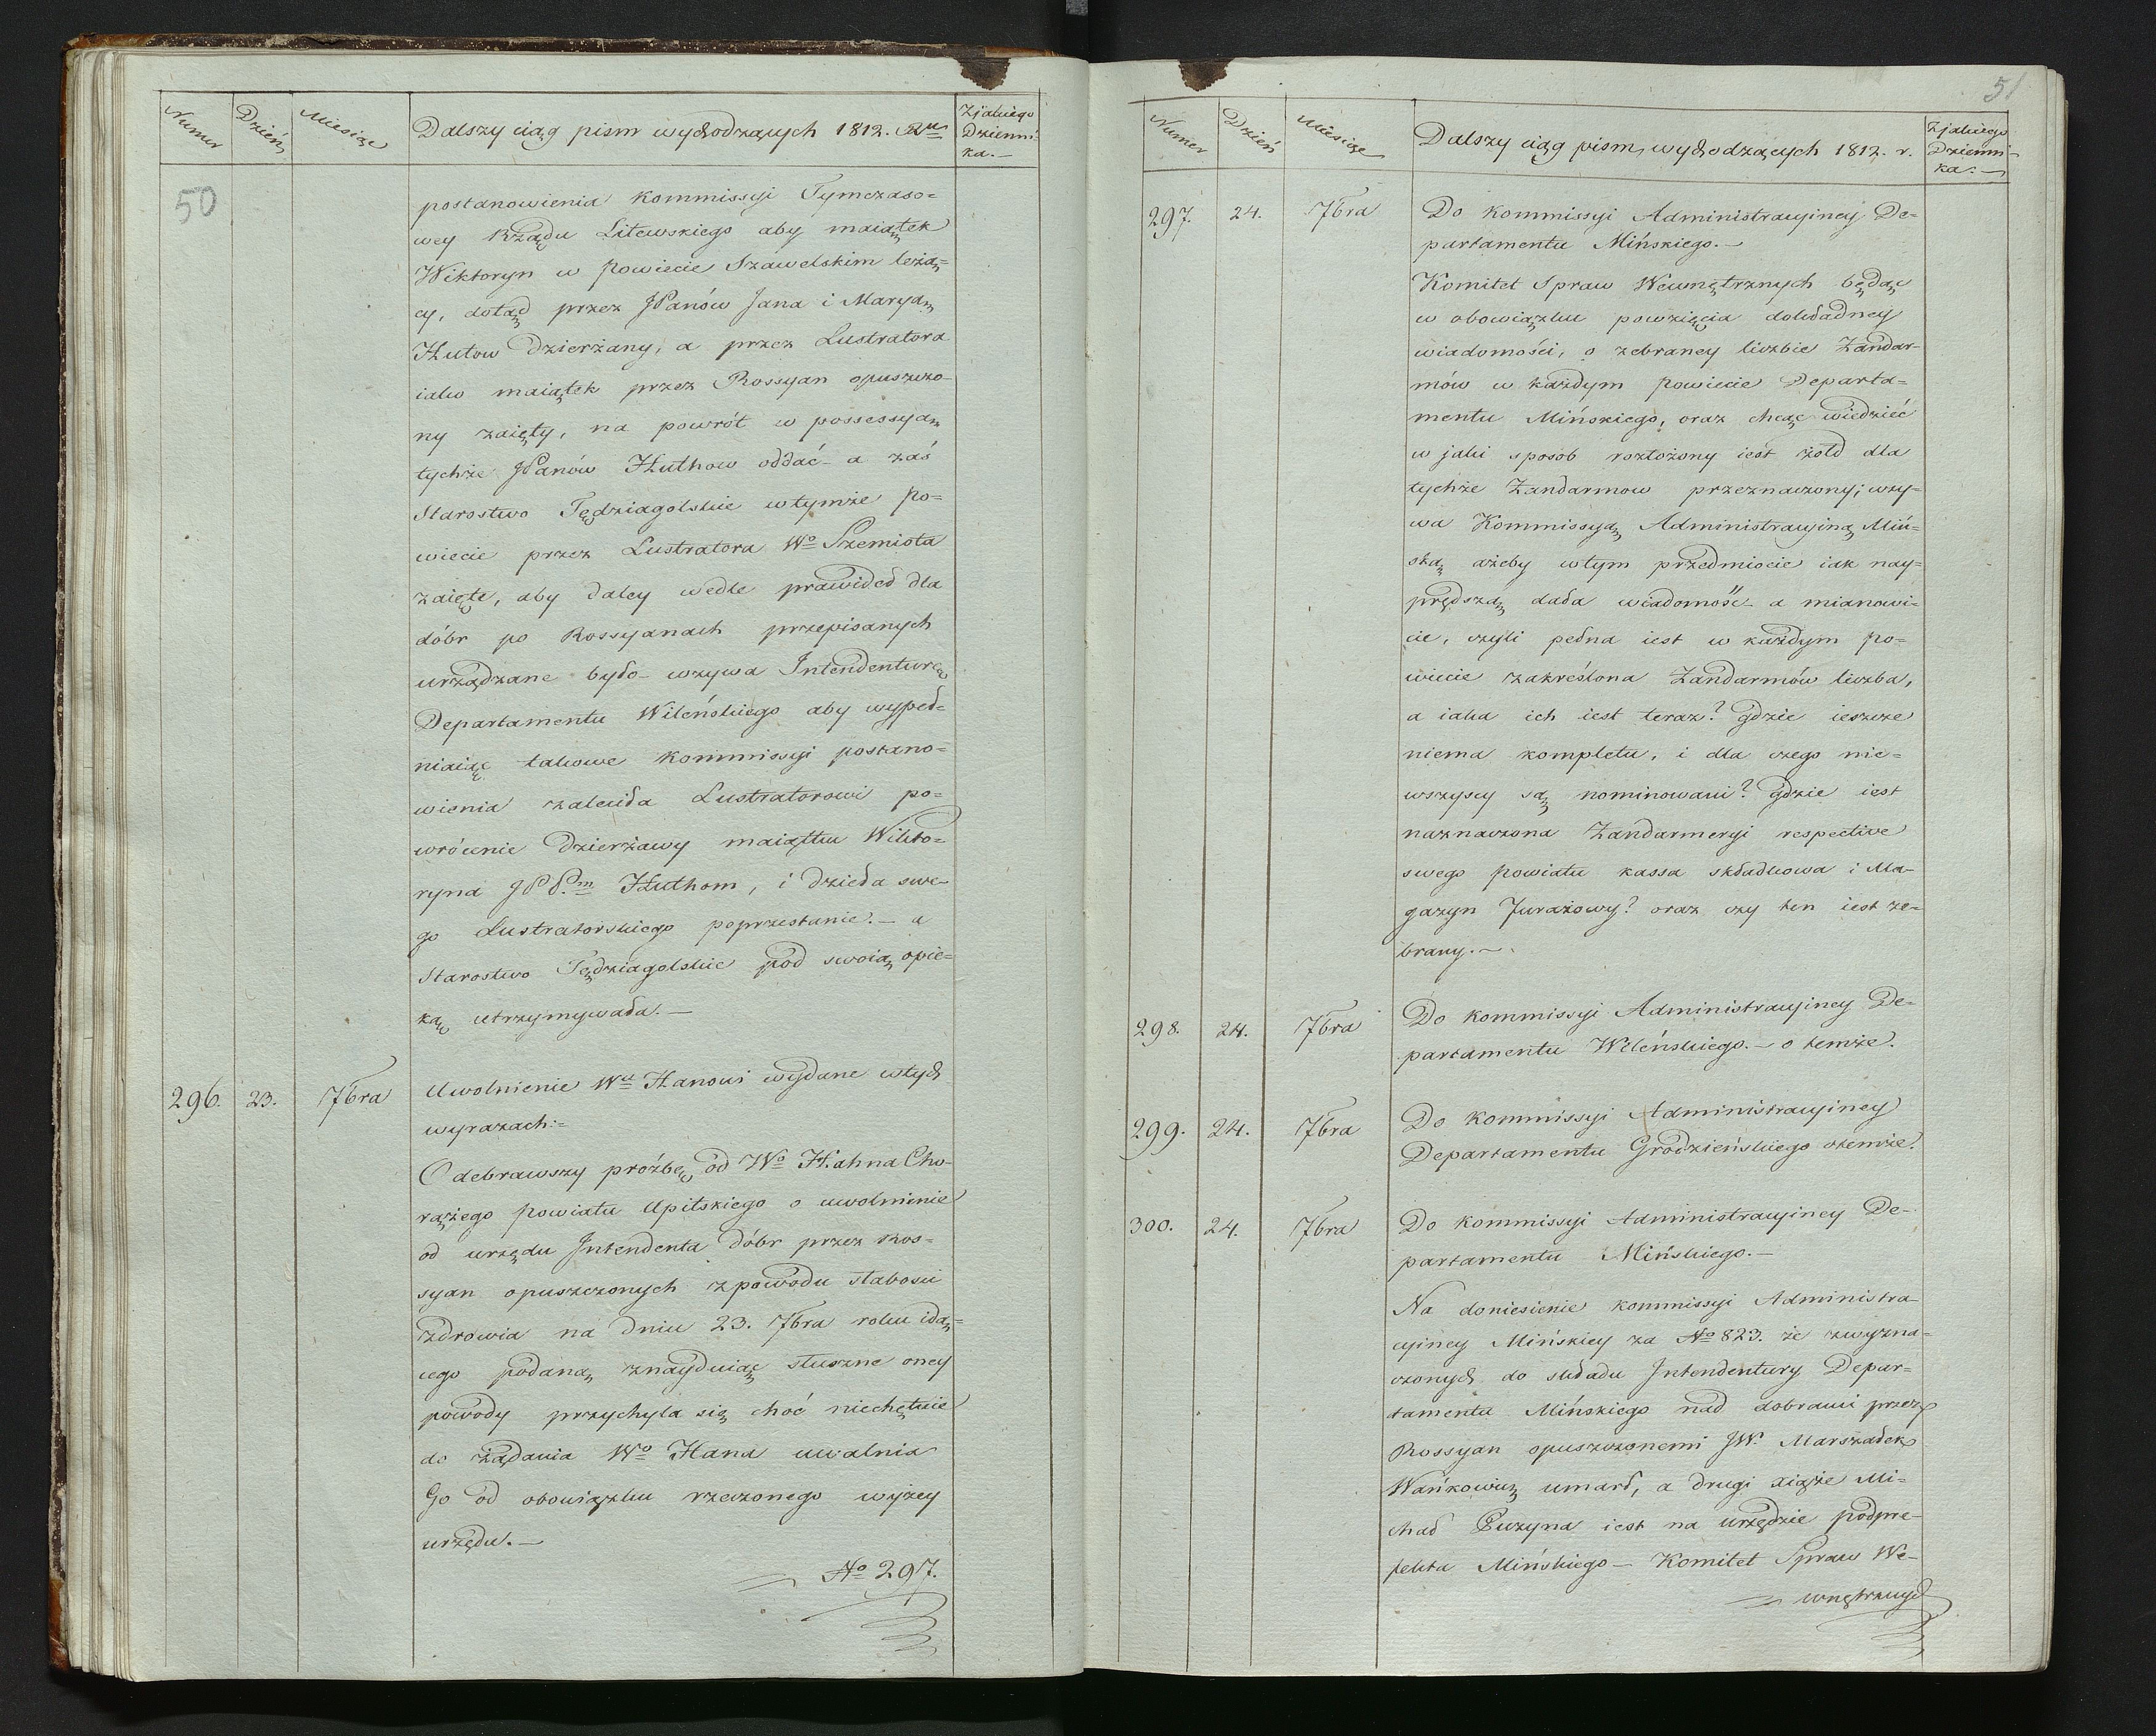 Numer
Dzień
Miesiąc
Dalszy ciąg pism wychodzących 1812. Ru
Zjakiego
Dzienni-
ka.—
50
postanowienia Kommissyi Tymczaso=
wey Rządu Litewskiego aby maiątek
Wiktoryn w Powiecie Szawelskim leżą=
cy, dotąd przez JPanów Jana i Maryą
Hutow Dzierżany, a przez Lustratora
iako maiątek przez Rossyan opuszczo-
ny zaięty, na powrót w possessyą
tychże JPanów Huthow oddać – a zaś
Starostwo Tędziagolskie wtymże Po=
wiecie przez Lustratora Wo Szemiota
zaięte, aby daley wedle prawideł dla
dóbr po Rossyanach przepisanych
urządzane było – wzywa Intendenturę
Departamentu Wileńskiego aby wypeł=
niaiąc takowe Kommissyi postano=
wienia zaleciła Lustratorowi po=
wrócenie Dzierżawy maiątku Wikto=
ryna JPP.m Huthom, i dzieła swe-
go Lustratorskiego poprzestanie. – a
Starostwo Tędziagolskie pod swoią opie=
ką utrzymywała.—
296. 23. 7bra Uwolnienie Wu Hanowi wydane wtych
wyrazach:=
Odebrawszy próźbę od Wo Hahna Cho-
rążego Powiatu Upitskiego o uwolnienie
od urzędu Intendenta dóbr przez Ros=
syan opuszczonych zpowodu słabości
zdrowia na dniu 23. 7bra roku idą=
cego podaną, znayduiąc słuszne oney
powody przychyla się choć niechętnie
do żądania Wo Hana uwalnia
Go od obowiązku rzeczonego wyżey
urzędu.—
No 297.
51
Numer
Dzień
Miesiąc
Dalszy ciąg pism, wychodzących 1812. r.
Zjakiego
Dzienni-
ka.—
297. 24. 7bra Do Kommissyi Administracyiney De=
partamentu Mińskiego.—
Komitet Spraw Wewnętrznych będąc
w obowiązku powzięcia dokładney
wiadomości, o zebraney liczbie Żandar-
mów w każdym Powiecie Departa=
mentu Mińskiego, oraz chcąc wiedzieć
w jaki sposob rozłożony iest żołd dla
tychże Żandarmow przeznaczony; wzy-
wa Kommissyą Administracyiną Miń-
ską ażeby wtym przedmiocie iak nay-
prędszą dała wiadomość – a mianowi=
cie, czyli pełna iest w każdym Po=
wiecie zakreślona Żandarmów liczba,
a iaka ich iest teraz? gdzie ieszcze
niema kompletu, i dla czego nie=
wszyscy są nominowani? Gdzie iest
naznaczona Żandarmeryi respective
swego Powiatu kassa składkowa i Ma-
gazyn Furażowy? oraz czy ten iest ze-
brany.—
298. 24. 7bra Do Kommissyi Administracyiney De-
partamentu Wileńskiego.— o temże.
299. 24. 7bra Do Kommissyi Administracyiney
Departamentu Grodzieńskiego otemże.
300. 24. 7bra Do Kommissyi Administracyiney De-
partamentu Mińskiego.—
Na doniesienie Kommissyi Administra-
cyiney Mińskiey za No 823. że zwyzna-
czonych do składu Intendentury Depar=
tamentu Mińskiego nad dobrami przez
Rossyan opuszczonemi JW. Marszałek
Wańkowicz umarł, a drugi xiąże Mi=
chał Puzyna iest na urzędzie podpre-
fekta Mińskiego – Komitet Spraw We-
wnętrznych